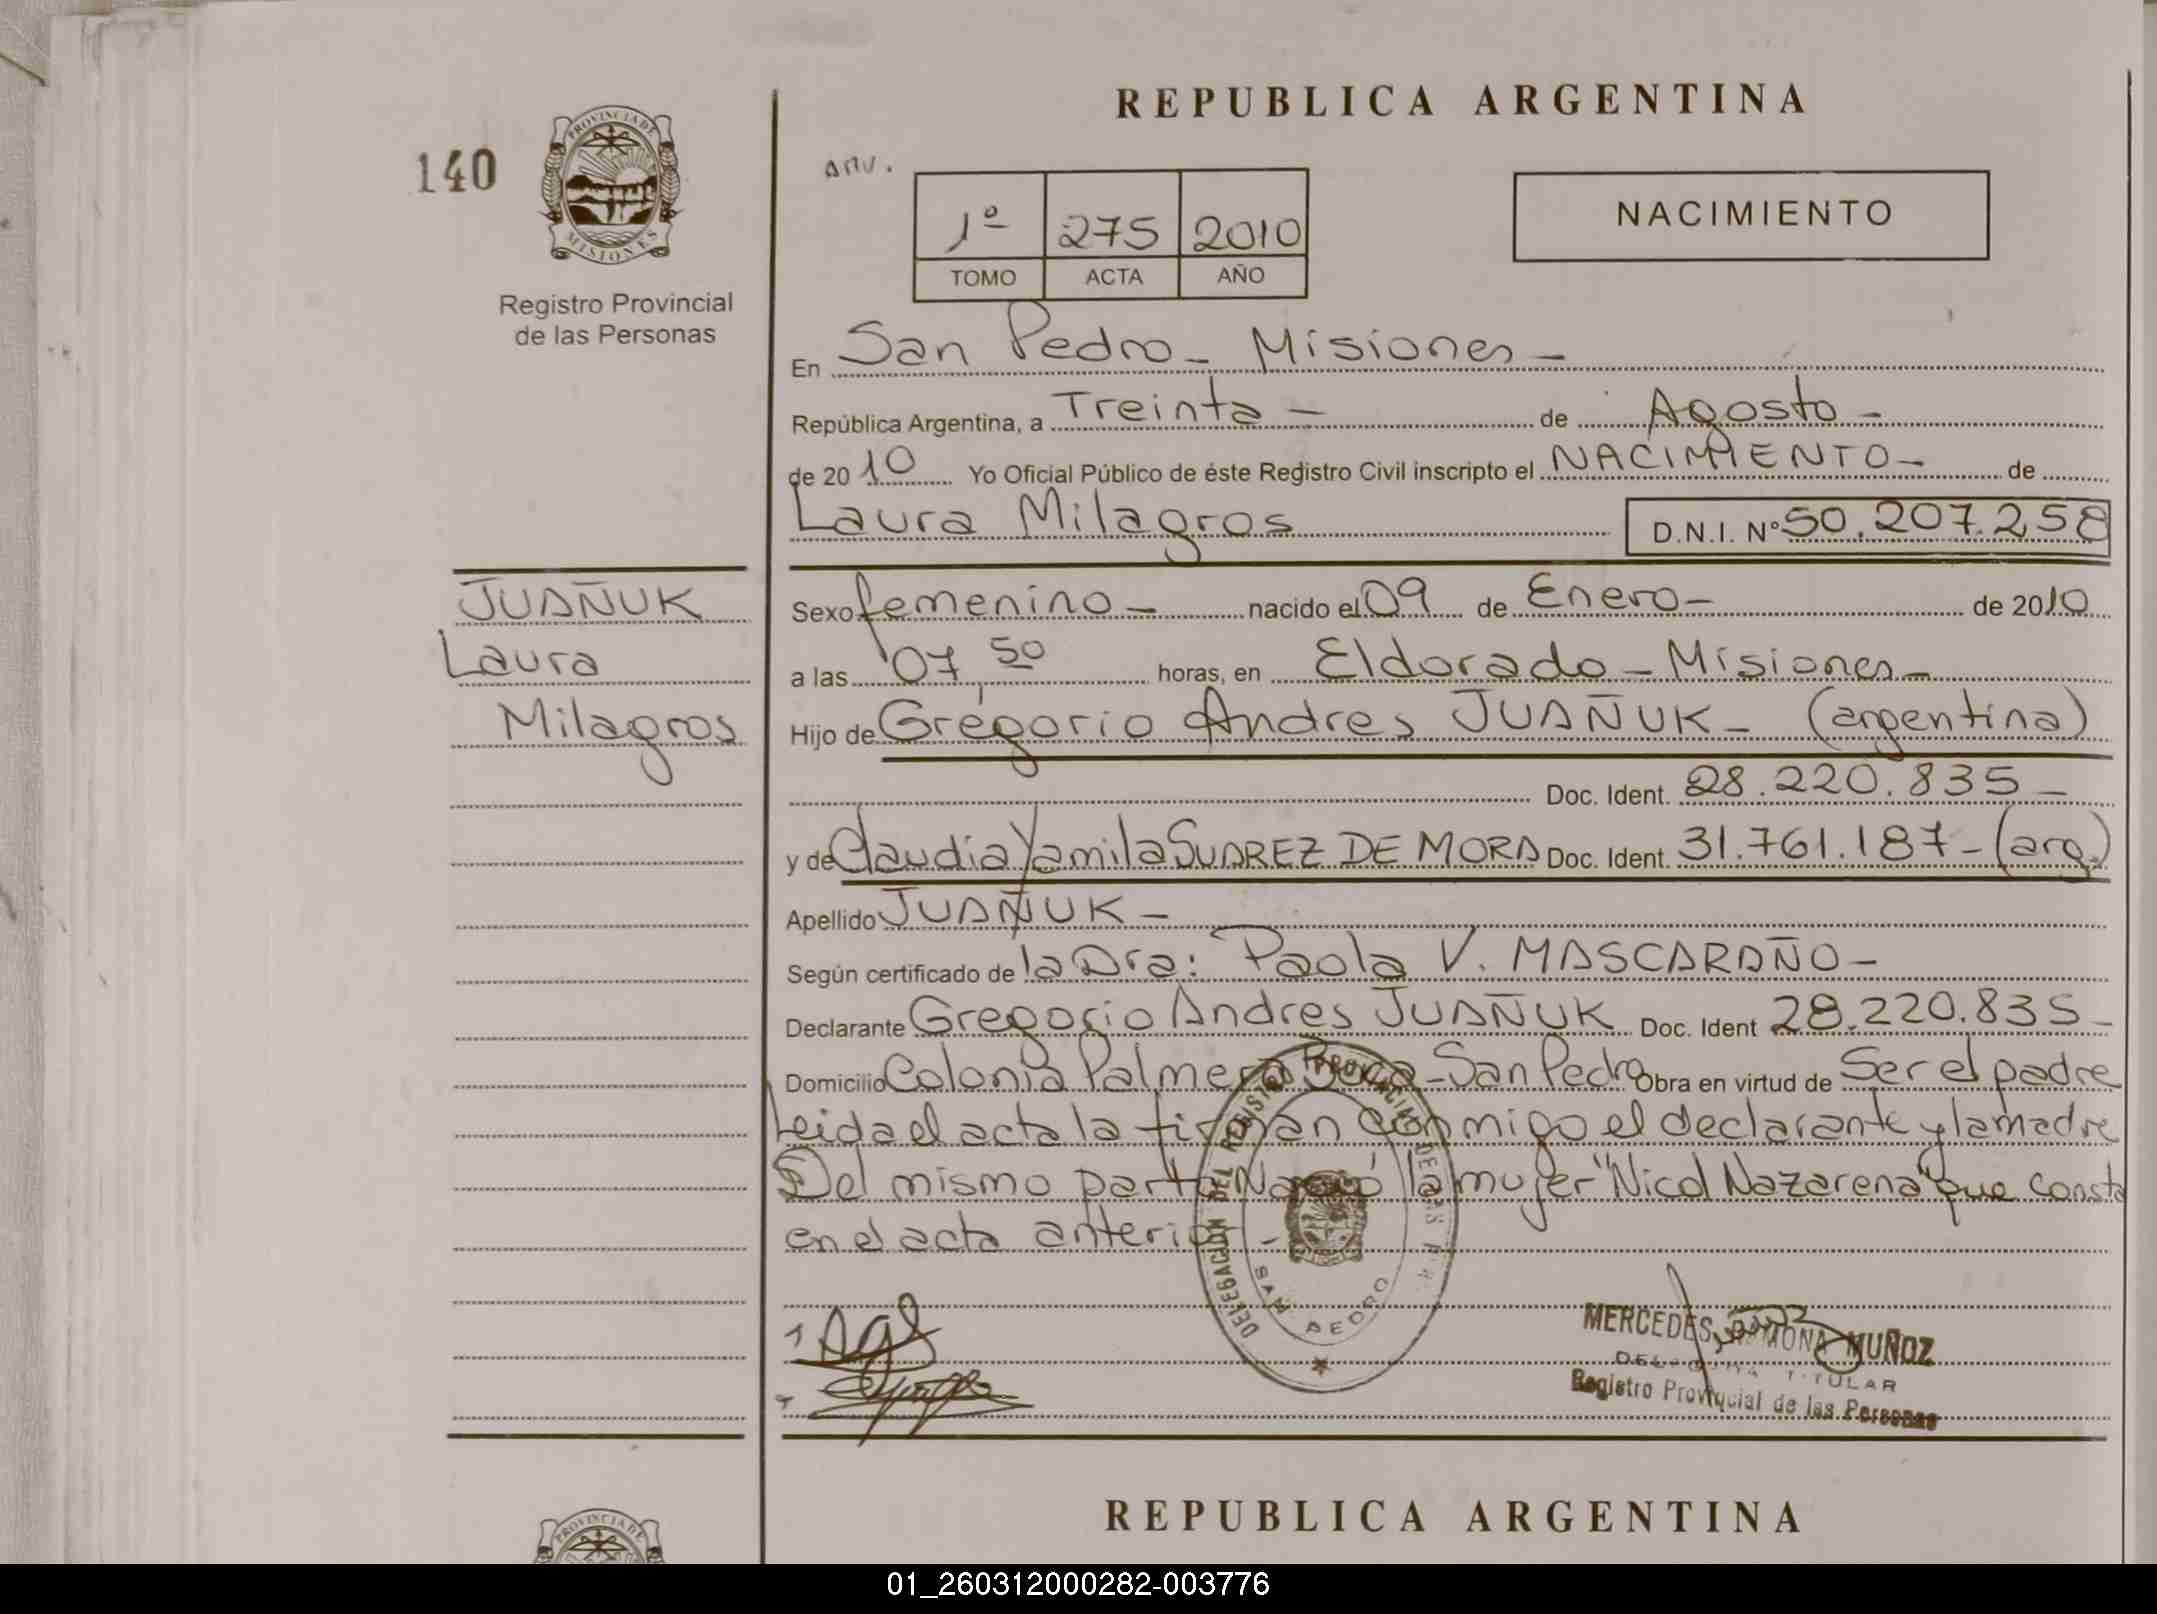 REPUBLICA ARGENTINA
140
PROVINCIA DE
MISIONES
Registro Provincial
de las Personas
1º 275 2010
TOMO ACTA AÑO
NACIMIENTO
En San Pedro - Misiones -
República Argentina, a Treinta - de Agosto -
de 2010 Yo Oficial Público de éste Registro Civil inscripto el NACIMIENTO - de
Laura Milagros D.N.I. Nº 50.207.258
JUAÑUK
Laura
Milagros
Sexo femenino - nacido el 09 de Enero - de 2010
a las 07 50 horas, en Eldorado - Misiones -
Hijo de Gregorio Andres JUAÑUK - (argentina)
Doc. Ident. 28.220.835 -
y de Claudia Yamila SUAREZ DE MORA Doc. Ident. 31.761.187 - (arg.)
Apellido JUAÑUK -
Según certificado de la Dra: Paola V. MASCARAÑO -
Declarante Gregorio Andres JUAÑUK Doc. Ident 28.220.835 -
Domicilio Colonia Palmera - San Pedro Obra en virtud de Ser el padre
Leida el acta la firman conmigo el declarante y la madre
Del mismo parto Nació la mujer "Nicol Nazarena" que consta
en el acta anterior -
DELEGACION DEL REGISTRO PROVINCIAL DE LAS
SAN PEDRO
MERCEDES RAMONA MUÑOZ
TITULAR
Registro Provincial de las Personas
REPUBLICA ARGENTINA
PROVINCIA DE
01_260312000282-003776